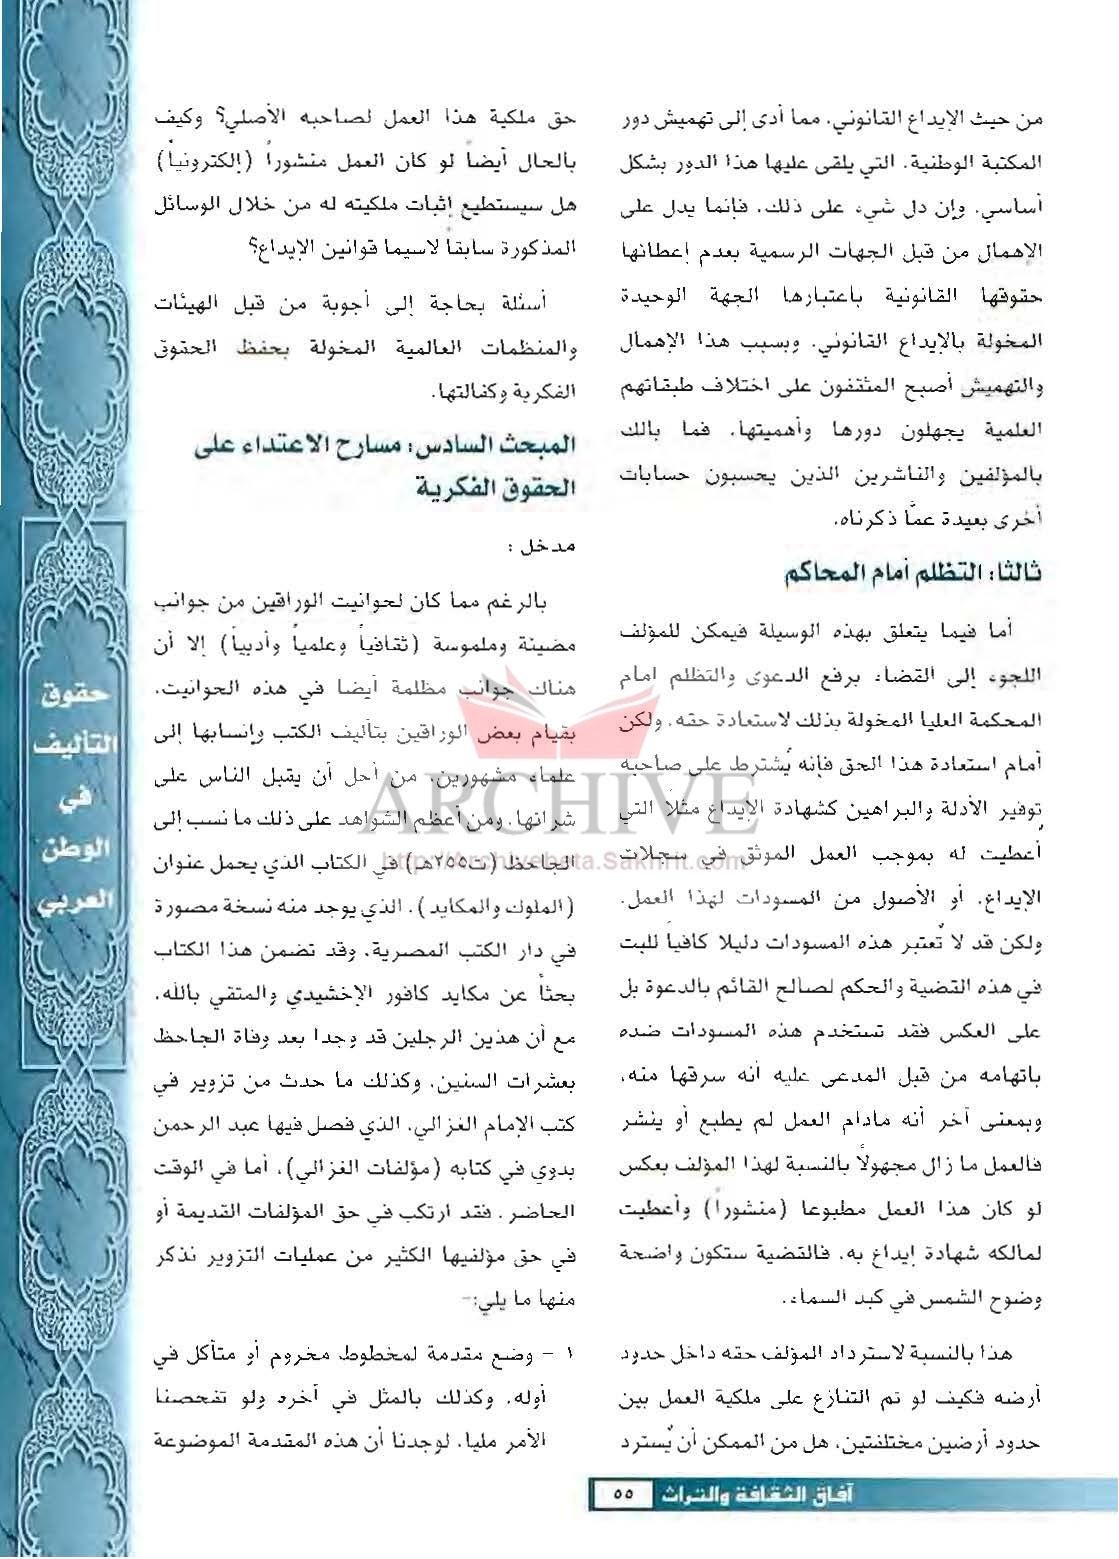 من حيث الإيداع القانوني، مما أدى إلى تهميش دور
المكتبة الوطنية، التي يلقى عليها هذا الدور بشكل
أساسي. وإن دل شيء على ذلك، فإنما يدل على
الإهمال من قبل الجهات الرسمية بعدم إعطائها
حقوقها القانونية باعتبارها الجهة الوحيدة
المخولة بالإيداع القانوني. وبسبب هذا الإهمال
والتهميش أصبح المثقفون على اختلاف طبقاتهم
العلمية يجهلون دورها وأهميتها. فما بالك
بالمؤلفين والناشرين الذين يحسبون حسابات
أخرى بعيدة عمّا ذكرناه.
ثالثا: التظلم أمام المحاكم
أما فيما يتعلق بهذه الوسيلة فيمكن للمؤلف
اللجوء إلى القضاء برفع الدعوى والتظلم امام
المحكمة العليا المخولة بذلك لاستعادة حقه. ولكن
أمام استعادة هذا الحق فإنه يُشترط على صاحبه
توفير الأدلة والبراهين كشهادة الإيداع مثلاً التي
أُعطيت له بموجب العمل الموثق في سجلات
الإيداع. أو الأصول من المسودات لهذا العمل.
ولكن قد لا تُعتبر هذه المسودات دليلا كافياً للبت
في هذه القضية والحكم لصالح القائم بالدعوة بل
على العكس فقد تستخدم هذه المسودات ضده
باتهامه من قبل المدعى عليه أنه سرقها منه،
وبمعنى آخر أنه مادام العمل لم يطبع أو ينشر
فالعمل ما زال مجهولاً بالنسبة لهذا المؤلف بعكس
لو كان هذا العمل مطبوعا (منشوراً) وأعطيت
لمالكه شهادة إيداع به، فالقضية ستكون واضحة
وضوح الشمس في كبد السماء.
هذا بالنسبة لاسترداد المؤلف حقه داخل حدود
أرضه فكيف لو تم التنازع على ملكية العمل بين
حدود أرضين مختلفتين، هل من الممكن أن يُسترد
حق ملكية هذا العمل لصاحبه الأصلي؟ وكيف
بالحال أيضاً لو كان العمل منشوراً (إلكترونياً)
هل سيستطيع إثبات ملكيته له من خلال الوسائل
المذكورة سابقاً لاسيما قوانين الإيداع؟
أسئلة بحاجة إلى أجوبة من قبل الهيئات
والمنظمات العالمية المخولة بحفظ الحقوق
الفكرية وكفالتها.
المبحث السادس: مسارح الاعتداء على
الحقوق الفكرية
مدخل :
بالرغم مما كان لحوانيت الوراقين من جوانب
مضيئة وملموسة (ثقافياً وعلمياً وأدبياً) إلا أن
هناك جوانب مظلمة أيضا في هذه الحوانيت.
بقيام بعض الوراقين بتأليف الكتب وإنسابها إلى
علماء مشهورين، من أجل أن يقبل الناس على
شرائها. ومن أعظم الشواهد على ذلك ما نسب إلى
الجاحظ (ت٢٥٥هـ) في الكتاب الذي يحمل عنوان
(الملوك والمكايد). الذي يوجد منه نسخة مصورة
في دار الكتب المصرية، وقد تضمن هذا الكتاب
بحثاً عن مكايد كافور الإخشيدي والمتقي بالله.
مع أن هذين الرجلين قد وجدا بعد وفاة الجاحظ
بعشرات السنين، وكذلك ما حدث من تزوير في
كتب الإمام الغزالي. الذي فصل فيها عبد الرحمن
بدوي في كتابه (مؤلفات الغزالي)، أما في الوقت
الحاضر. فقد ارتكب في حق المؤلفات القديمة أو
في حق مؤلفيها الكثير من عمليات التزوير نذكر
منها ما يلي:-
١ - وضع مقدمة لمخطوط مخروم أو متآكل في
أوله، وكذلك بالمثل في آخره ولو تفحصنا
الأمر مليا، لوجدنا أن هذه المقدمة الموضوعة
حقوق
التأليف
في
الوطن
العربي
ARCHIVE
http://Archivebeta.Sakhrit.com
آفاق الثقافة والتراث ٥٥